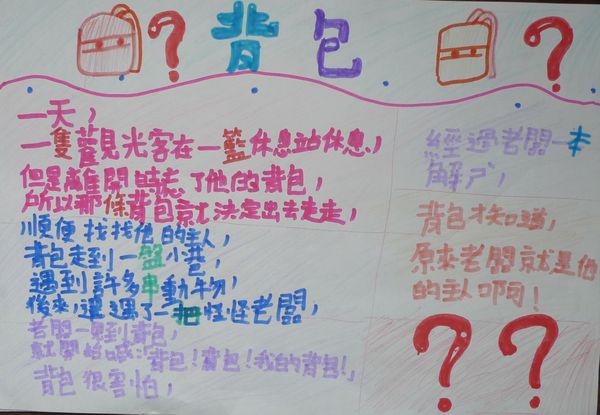 ?背包?
一天，
一隻觀光客在一籃休息站休息，
但是離開時忘了他的背包，
所以那條背包就決定出去走走，
順便找找他的主人，
背包走到一盤小巷，
遇到許多串動物，
後來，還遇了一把怪怪老闆，
老闆一看到背包，
就開始喊：「背包！背包！我的背包！」
背包很害怕，
經過老闆一本
解尸，
背包才知道，
原來老闆就是他
的主人啊！
??